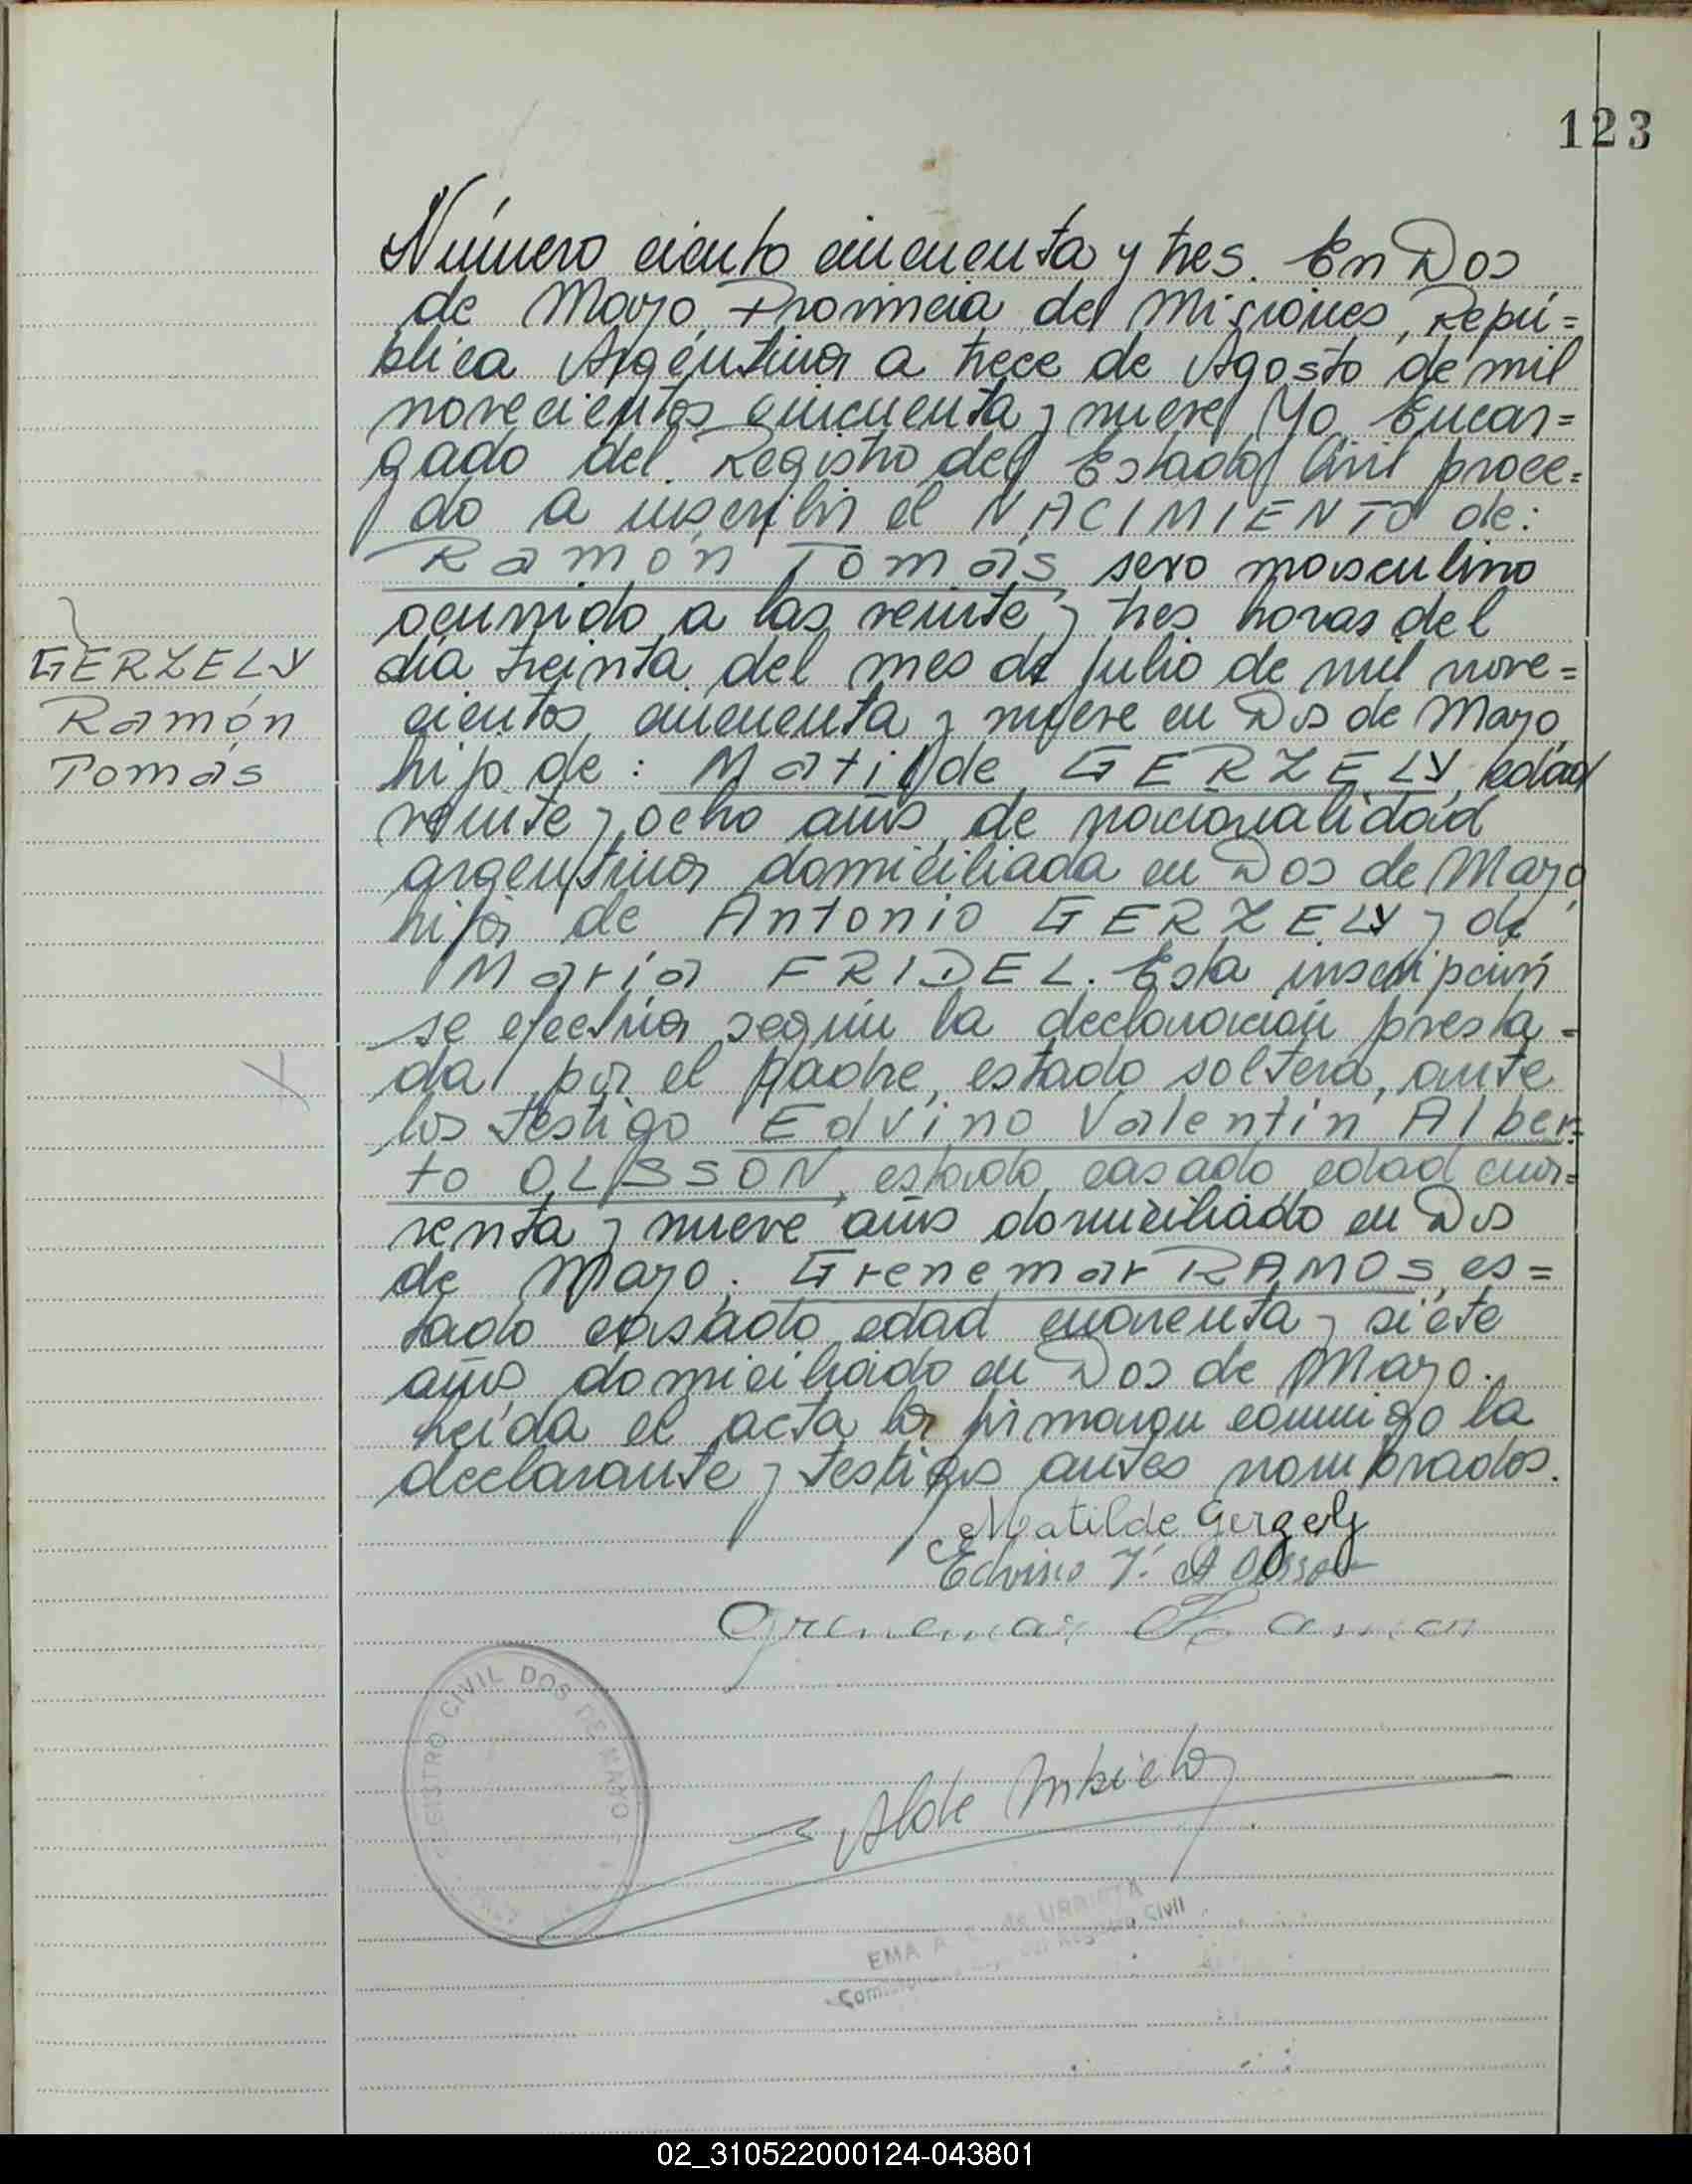 123
Número ciento cincuenta y tres. En Dos
de Mayo Provincia de Misiones, Repú=
blica Argentina a trece de Agosto de mil
novecientos cincuenta y nueve Yo Encar=
gado del Registro del Estado Civil proce=
do a inscribir el NACIMIENTO de:
Ramón Tomás, sexo masculino
ocurrido a las veinte y tres horas del
día treinta del mes de Julio de mil nove=
cientos cincuenta y nueve en Dos de Mayo
hijo de: Matilde GERZELY, edad
veinte y ocho años, de nacionalidad
argentina domiciliada en Dos de Mayo,
hija de Antonio GERZELY y de
María FRIDEL. Esta inscripción
se efectúa según la declaración presta=
da por el padre, estado soltera, ante
los testigo Edvino Valentín Alber=
to OLSSON, estado casado edad cua=
renta y nueve años domiciliado en Dos
de Mayo. Grenemar RAMOS es=
tado casado edad cuarenta y siete
años domiciliado en Dos de Mayo.
Leída el acta la firmaron conmigo la
declarante y testigos antes nombrados.
GERZELY
Ramón
Tomás
Matilde Gerzely
Edvino V. A Olsson
Grenemar Ramos
REGISTRO CIVIL DOS DE MAYO
EMA A. de URRIETA
Registro Civil
02_310522000124-043801